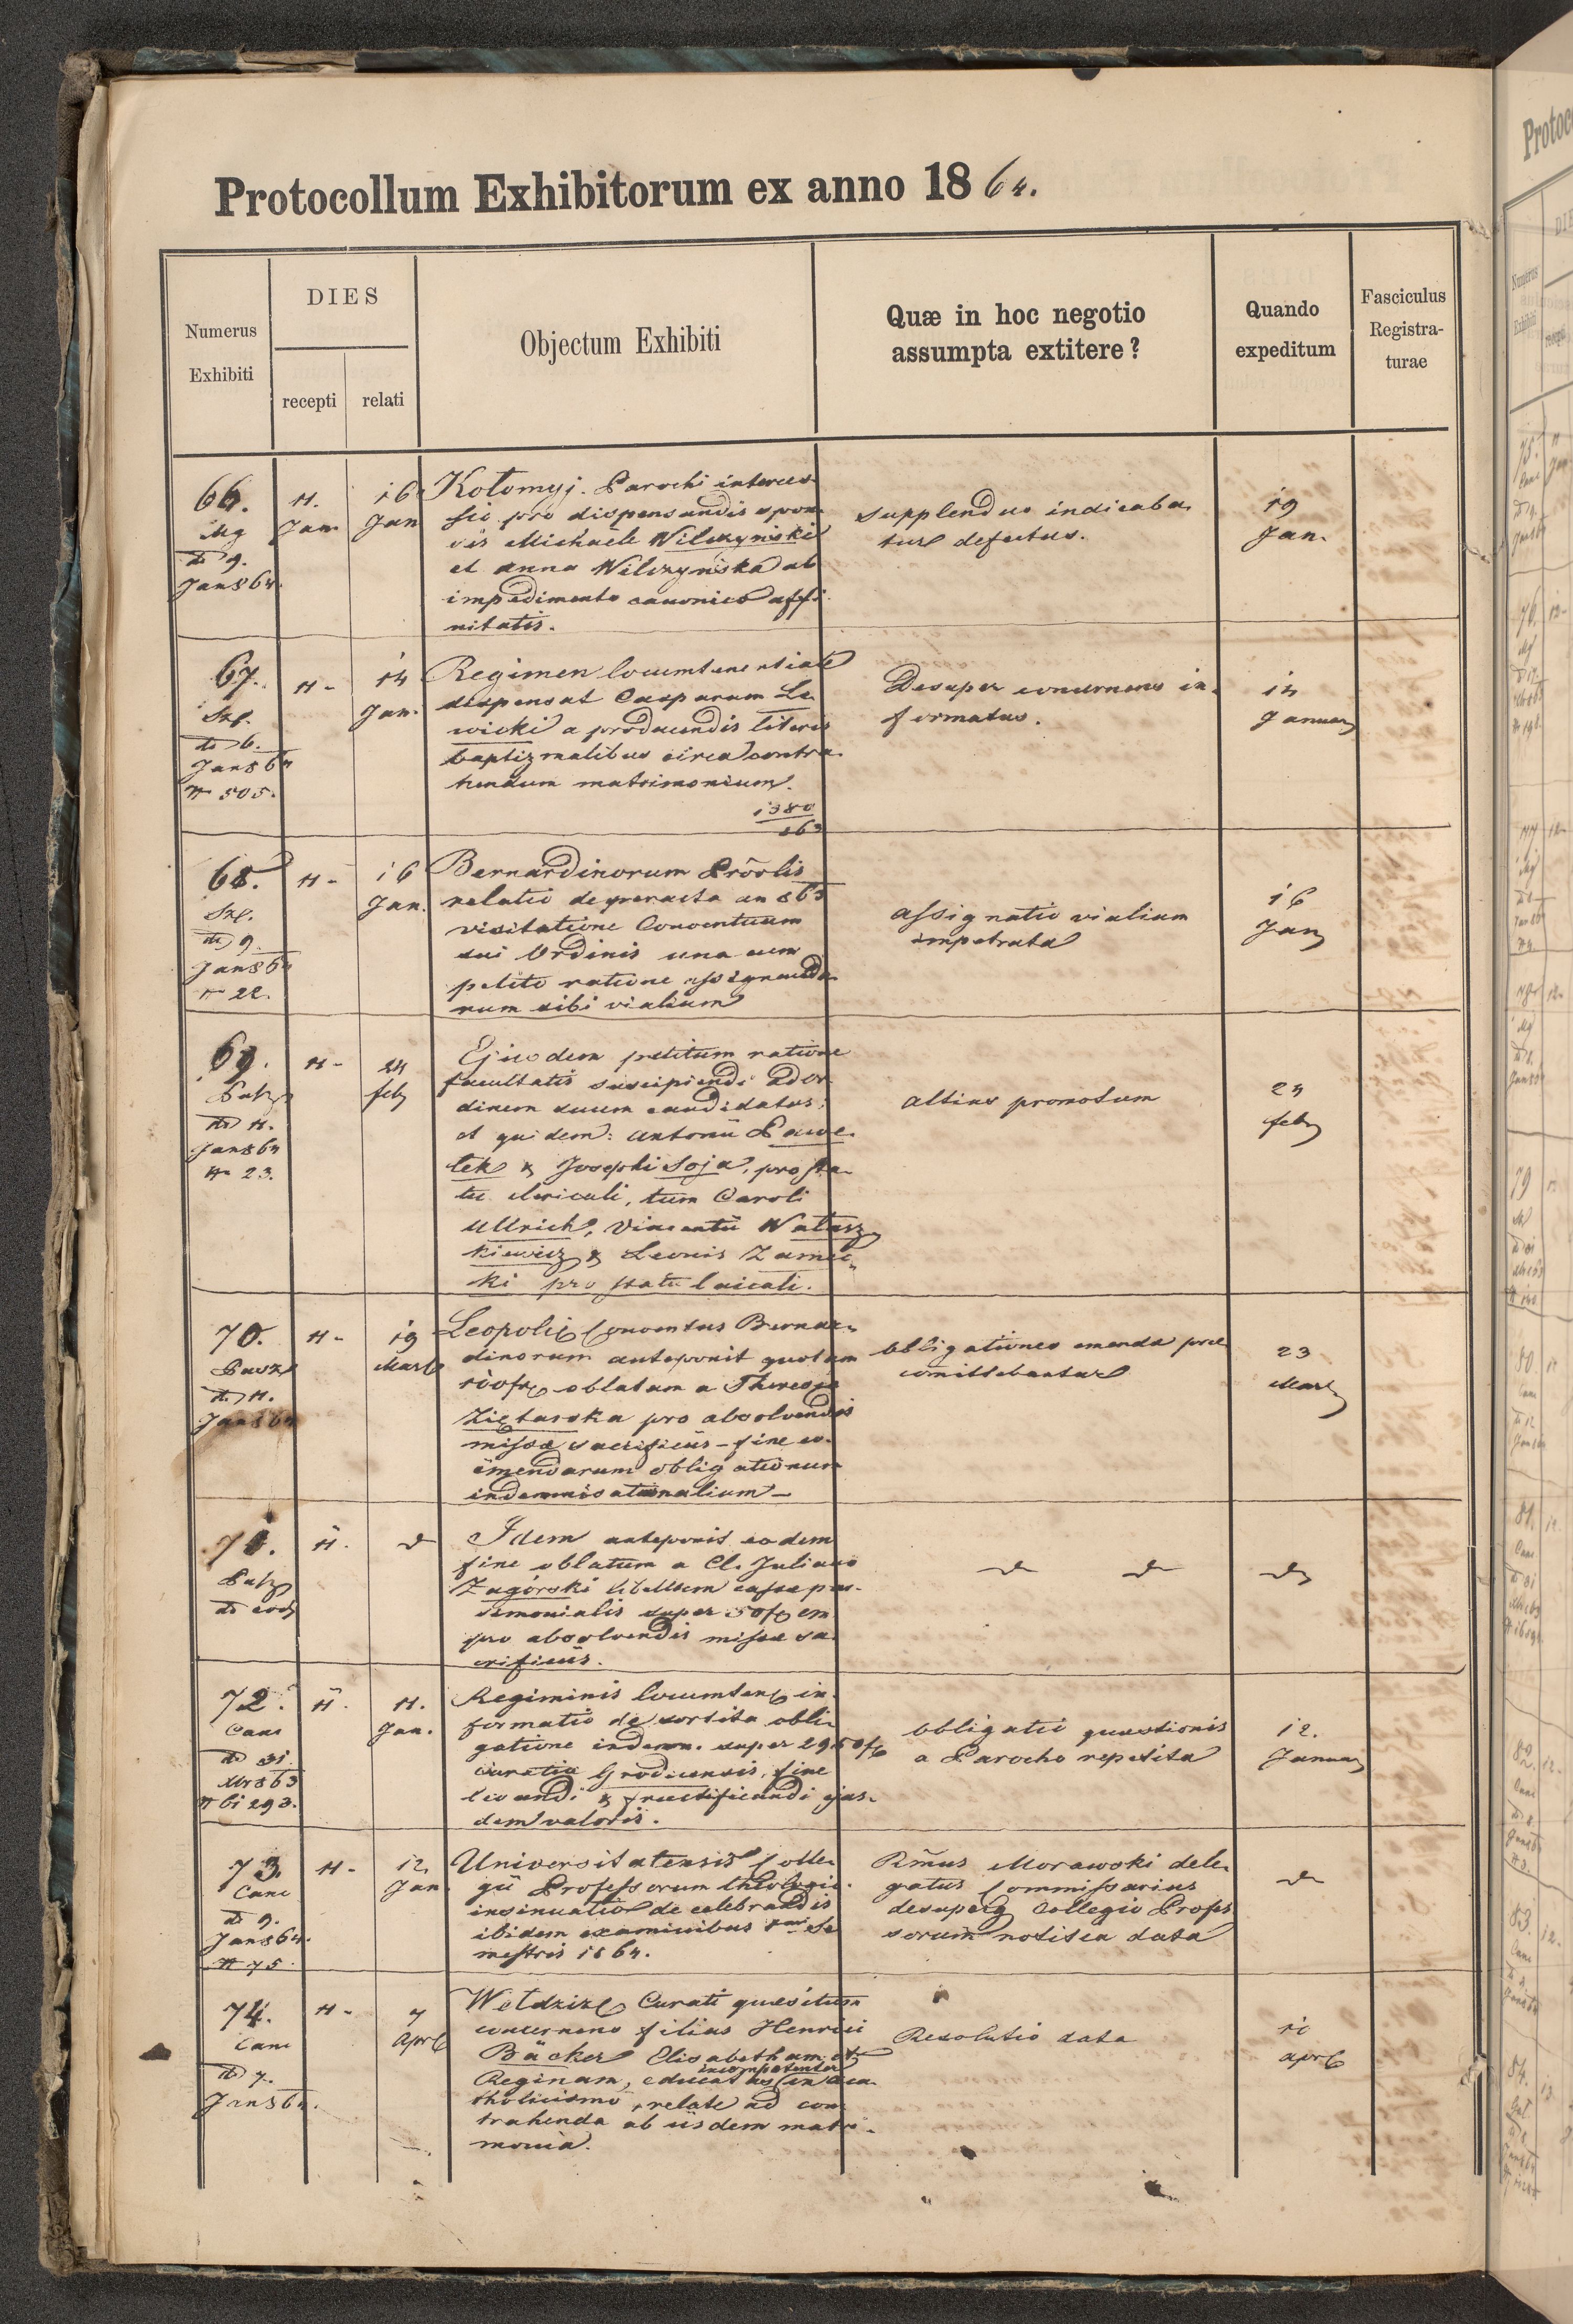 Protocollum Exhibitorum ex anno 1864.
Numerus
Exhibiti
DIES
recepti
relati
Objectum Exhibiti
Quæ in hoc negotio
assumpta extitere?
Quando
expeditum
Fasciculus
Registra-
turae
66.
Mg
dto 9.
Jan 864.
11.
Jan.
16
Jan
Kołomyj. Parochi interces-
sio pro dispensandis spon-
sis Michaele Wilczyński
et Anna Wilczyńska ab
impedimento canonico affi-
nitatis.
supplendus indicaba-
tur defectus.
19
Jan.
67.
dto 6.
Jan 864
N 505.
11-
14
Jan.
Regimen locumtenentiale
dispensat Casparum Le-
wicki a producendis literis
baptizmalibus circa contra-
hendum matrimonium.
1380
863
Desuper concernens in-
formatus.
14
Januar
68.
dto 9.
Jan 864
N 22.
11-
16
Jan.
Bernardinorum Prõvlis
relatio de peracta an 863
visitatione Conventuum
sui Ordinis una cum
petito ratione assignanda-
rum sibi vialium
assignatio vialium
impetrata
16
Jan
69.
dto 11.
Jan 864
N 23.
11-
24
feb
Ejusdem petitum ratione
facultatis suscipiendi ad or-
dinem suum candidatos:
et quidem: Antonii Pawe-
łek & Josephi Soja, pro sta-
tu clericali, tum Caroli
Ullrich, Vincentii Watasz
kiewicz & Leonis Zamec-
ki pro statu laicali.
altius promotum
24
feb
70.
dto 11.
Jan 864
11-
19
Mart
Leopoli Conventus Bernar-
dinorum anteponit quotam
100f oblatam a Theresia
Ziętarska pro absolvendis
missæ sacrificiis - fine co-
ëmendarum obligationum
indemnisationalium -
obligationes emenda præ
comittebantur
23
Mart
71.
dto eod
11.
d
Idem anteponit eodem
fine oblatum a Cl. Juliano
Zagórski libellum cassæ par-
simonialis super 50f cm
pro absolvendis missæ sa-
crificiis.
d d
d
72.
Canc
dto 31.
Xbr 863
N 61293.
11.
11.
Jan.
Regiminis locumten in-
formatio de sortita obli-
gatione indemn. super 2950f
curatiæ Grodicensis, fine
levandi & fructificandi ejus-
dem valoris.
obligatio quæstionis
a Parocho repetita
12.
Januar
73.
Canc
dto 9.
Jan 864.
N 75.
11-
12.
Jan
Universitatensis Colle-
gii Professorum theologiæ
insinuatio de celebrandis
ibidem examinibus Se-
mestris 1864.
Rm̃us Morawski dele-
gatus Commissarius
desuperq Collegio Profes
sorum notitia data
d
74.
Canc
dto 7.
Jan 864.
11-
7
Apr
Wełdziz Curati quæsitum
concernens filias Henrici
Bäcker Elisabetham et
Reginam, educatas incompetenter in aca-
tholicismo, relate ad con-
trahenda ab iisdem matri-
monia.
Resolutio data
10
apr